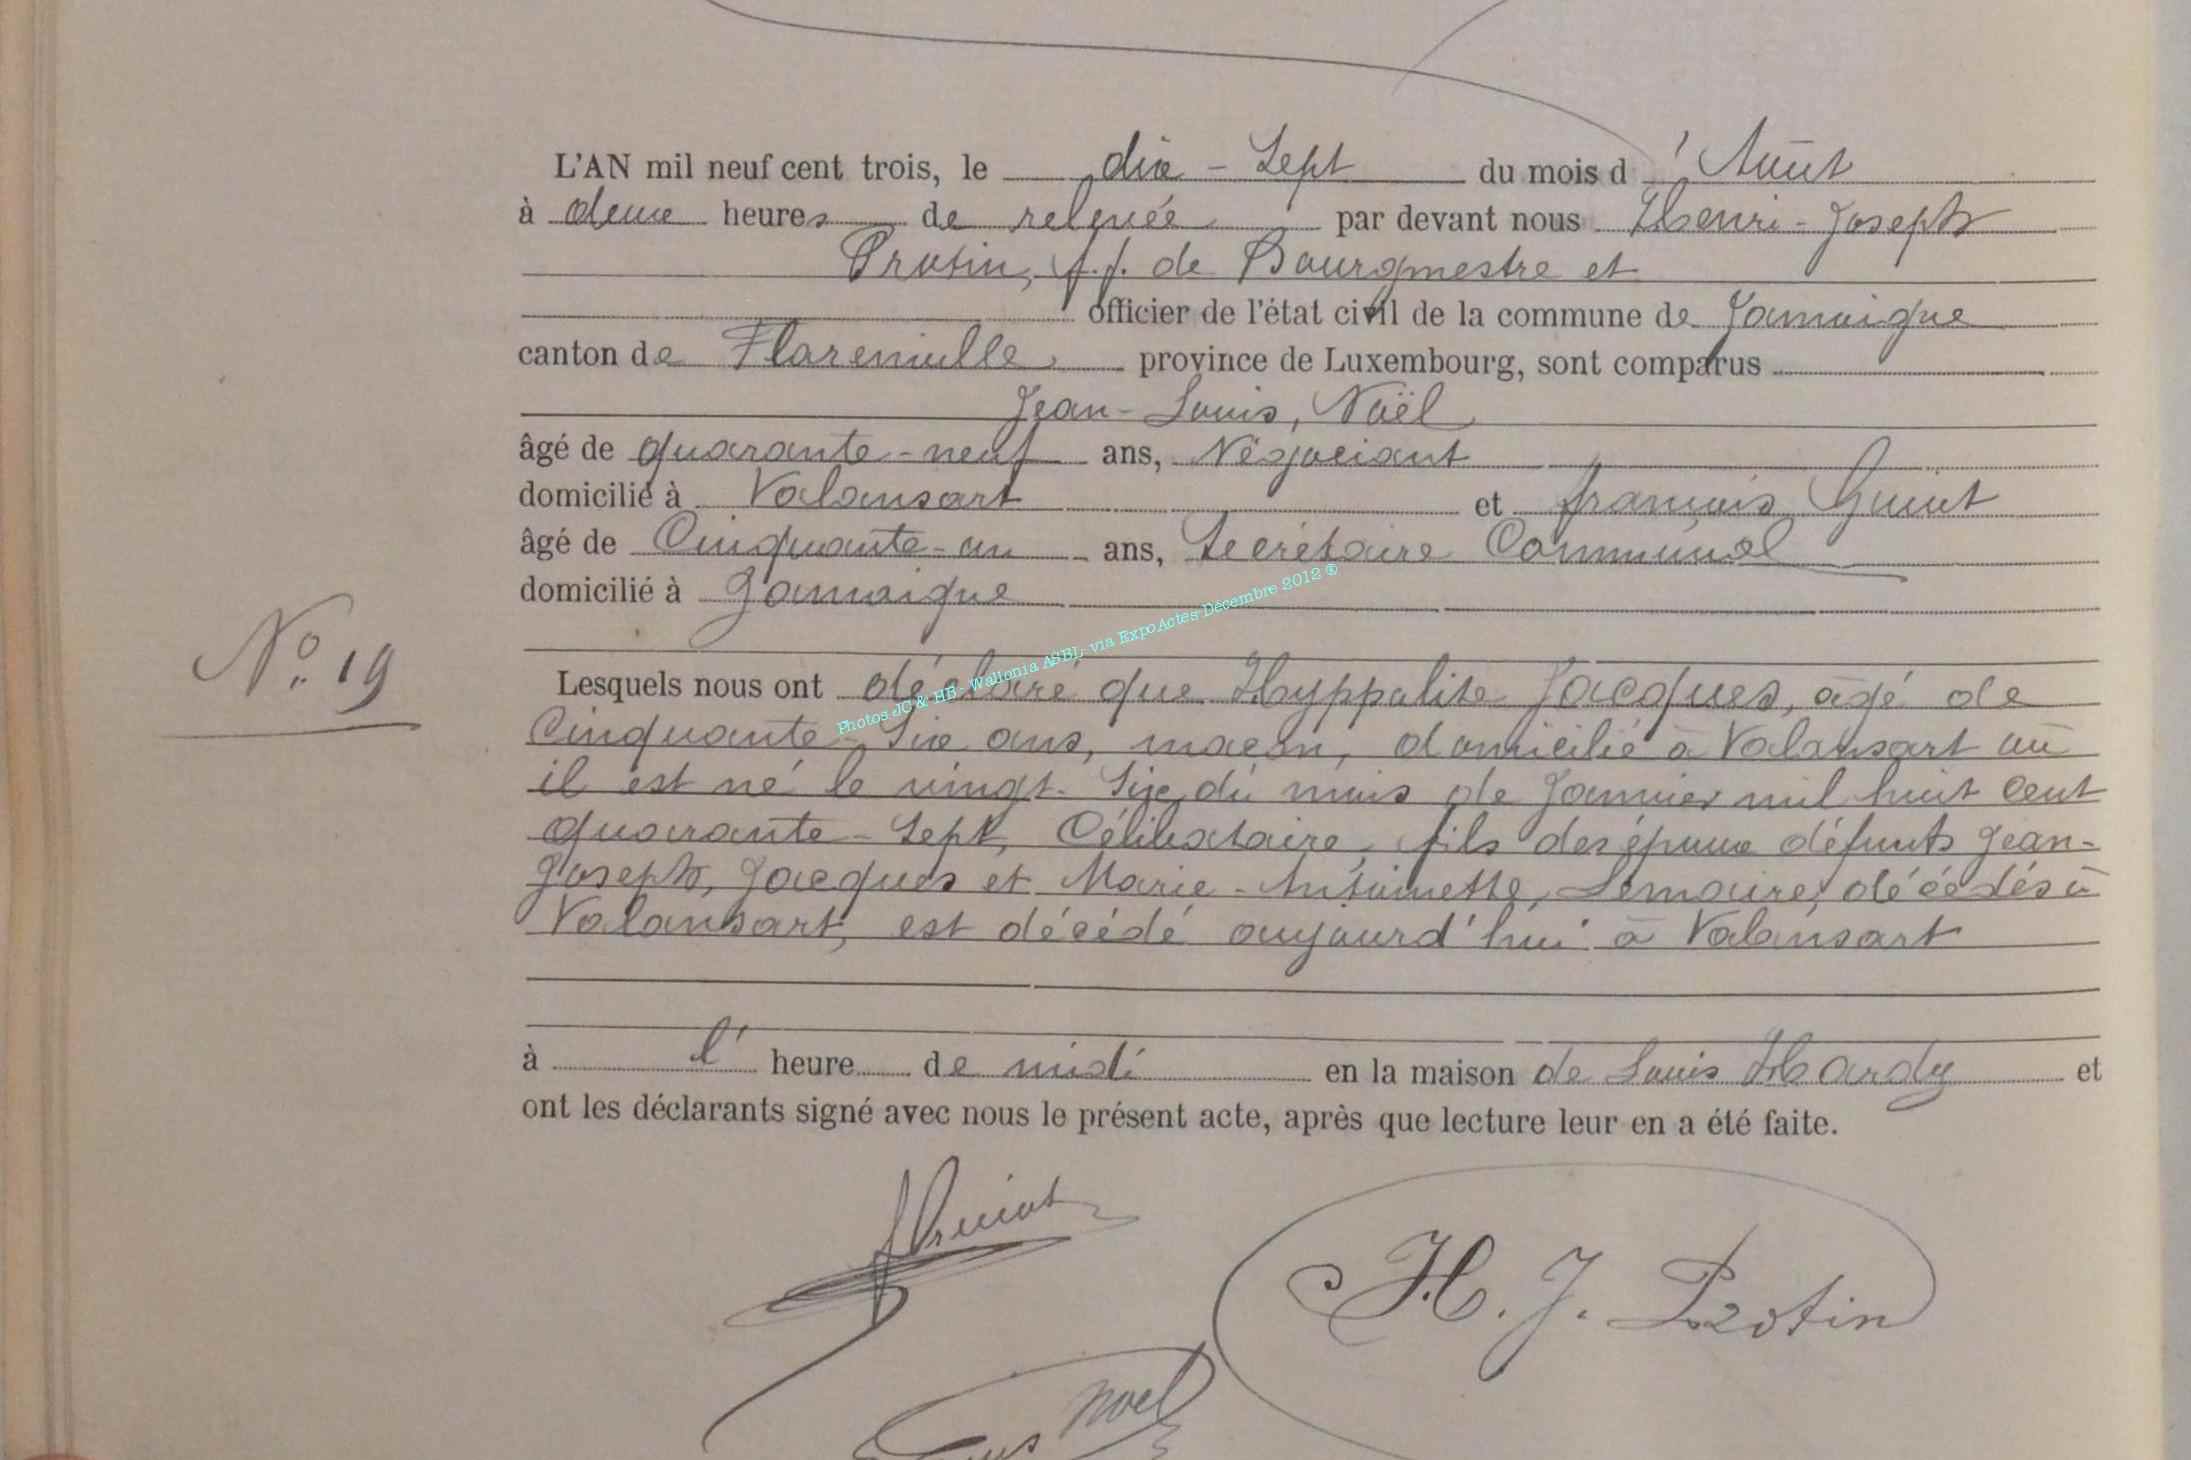 L'AN mil neuf cent trois, le dix-Sept du mois d'Août
à deux heures de relevée par devant nous Henri-Joseph
Protin, f.f. de Bourgmestre et
officier de l'état civil de la commune de Jamoigne
canton de Florenville, province de Luxembourg, sont comparus
Jean-Louis, Noël
âgé de quarante-neuf ans, Négociant
domicilié à Valansart et françois
âgé de Cinquante-un ans, Secrétaire Communal
domicilié à Jamoigne
N° 19
Photos JC & HB - Wallonia ASBL via ExpoActes Décembre 2012 ®
Lesquels nous ont déclaré que Hyppolite Jacques, âgé de
Cinquante-Six ans, maçon, domicilié à Valansart où
il est né le vingt-Six du mois de Janvier mil huit Cent
quarante-Sept, Célibataire, fils des époux défunts Jean-
Joseph, Jacques et Marie-Antoinette, Lemaire, décédés à
Valansart, est décédé aujourd'hui à Valansart
à l'heure de midi en la maison de Louis Hardy et
ont les déclarants signé avec nous le présent acte, après que lecture leur en a été faite.
H. J. Protin
Noel